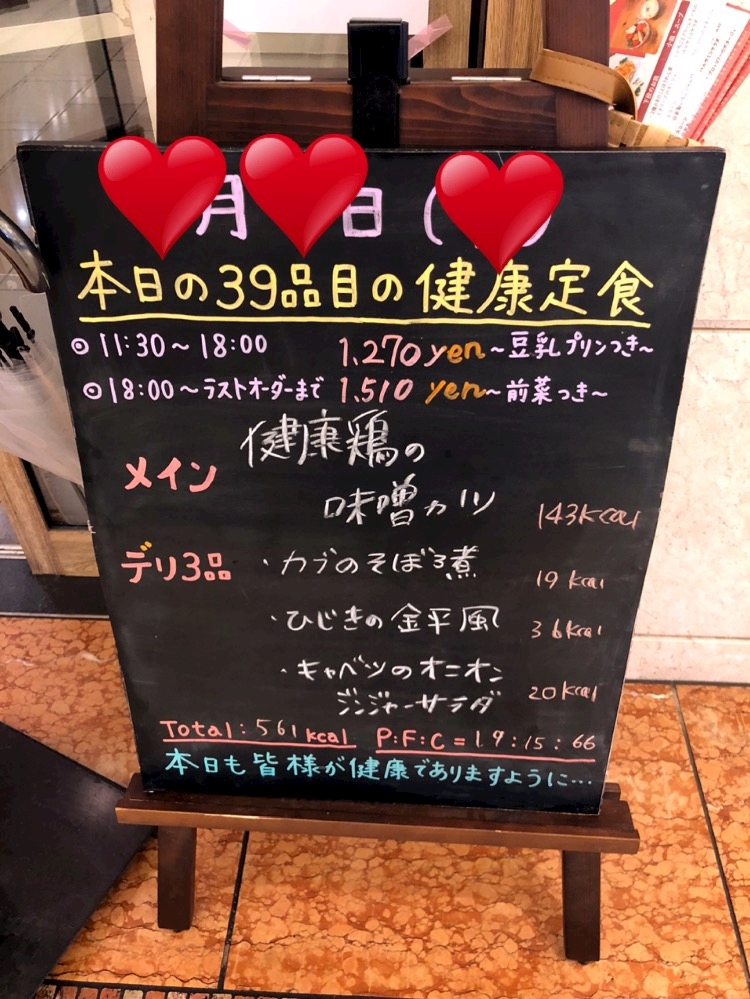 月 日 (
本日の39品目の健康定食
◎11:30~18:00 1.270yen~豆乳プリンつき~
◎18:00~ラストオーダーまで 1.510 yen~前菜つき~
メイン 健康鶏の
味噌カツ 143kcal
デリ3品 ・カブのそぼろ煮 19 kcal
・ひじきの金平風 36kcal
・キャベツのオニオン
ジンジャーサラダ 20kcal
Total:561kcal P:F:C=19:15:66
本日も皆様が健康でありますように…